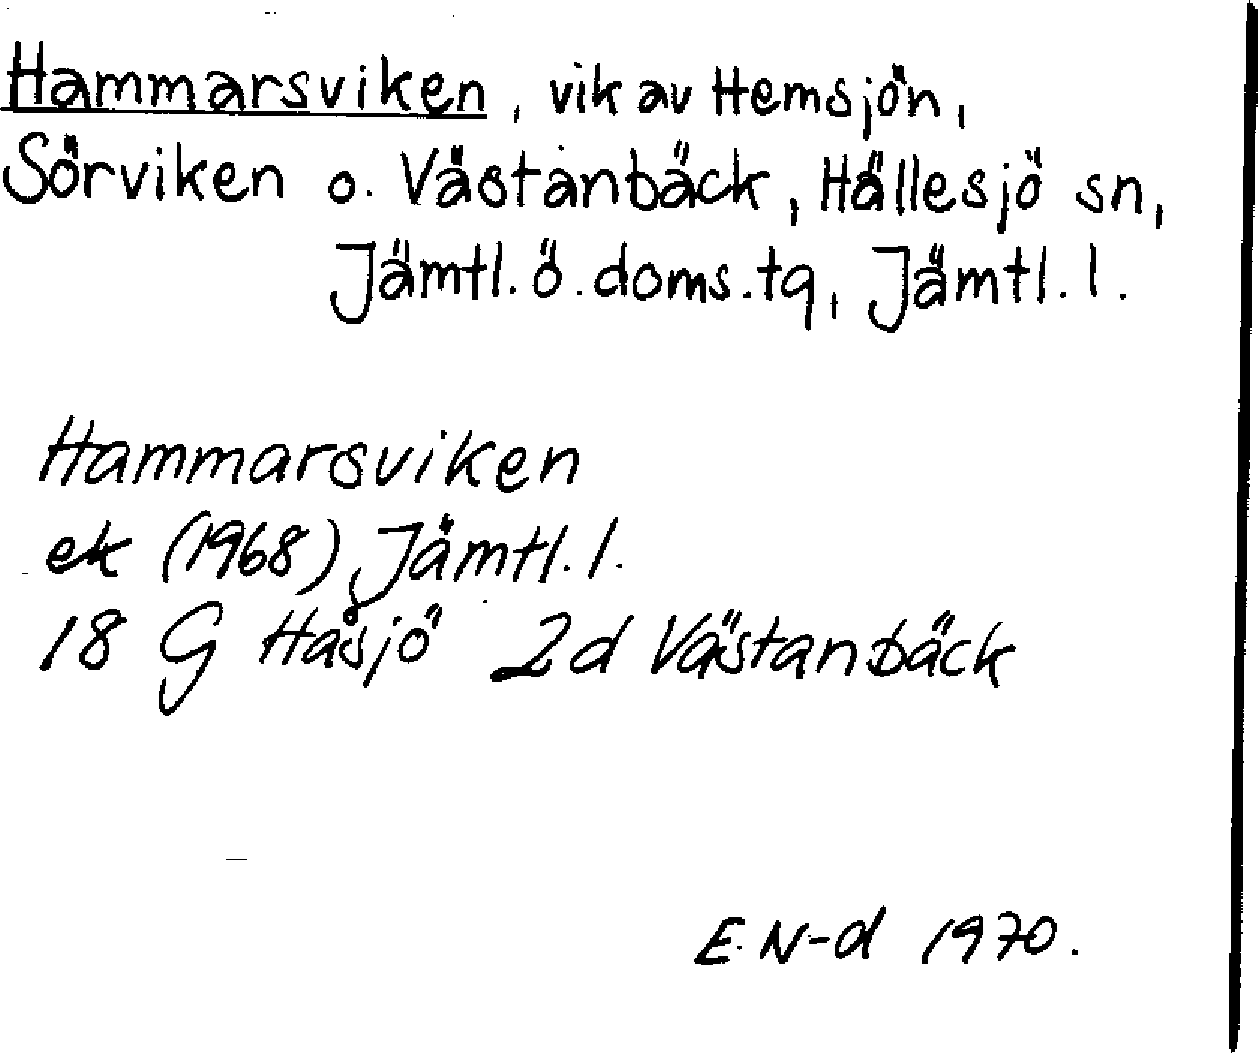 Hammarsviken, vik av Hemsjön,
Sörviken o. Västanbäck, Hällesjö sn,
Jämtl. ö. doms.tg, Jämtl. l.
Hammarsviken
ek (1968) Jämtl. l.
18 G Håsjö 2d Västanbäck
E. N-d 1970.